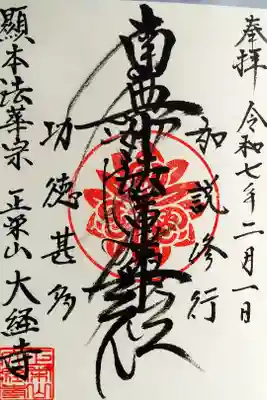 奉拝 令和七年二月一日
如説修行
南無妙法蓮華経
功徳甚多
顕本法華宗 正栄山 大経寺